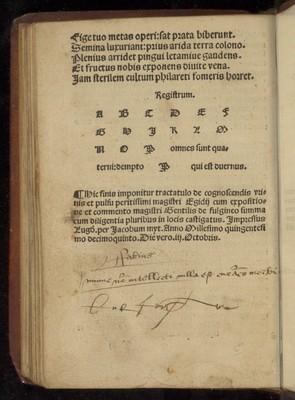 Fige tuo metas operi: sat prata biberunt.
Semina luxuriant: prius arida terra colono.
Plenius arridet pingui letamine gaudens.
Et fructus nobis exponens diuite vena.
Iam sterilem cultum philareti fomeris horret.
Registrum.
A B C D E F
G H I K L M
N O P omnes sunt qua-
terni: dempto P qui est duernus.
Hic finis imponitur tractatulo de cognoscendis vri-
nis et pulsu peritissimi magistri Egidij cum expositio-
ne et commento magistri Gentilis de fulgineo summa
cum diligentia pluribus in locis castigatus. Impressus
Lugd. per Jacobum myt. Anno Millesimo quingentesi
mo decimoquinto. Die vero .iij. Octobris.